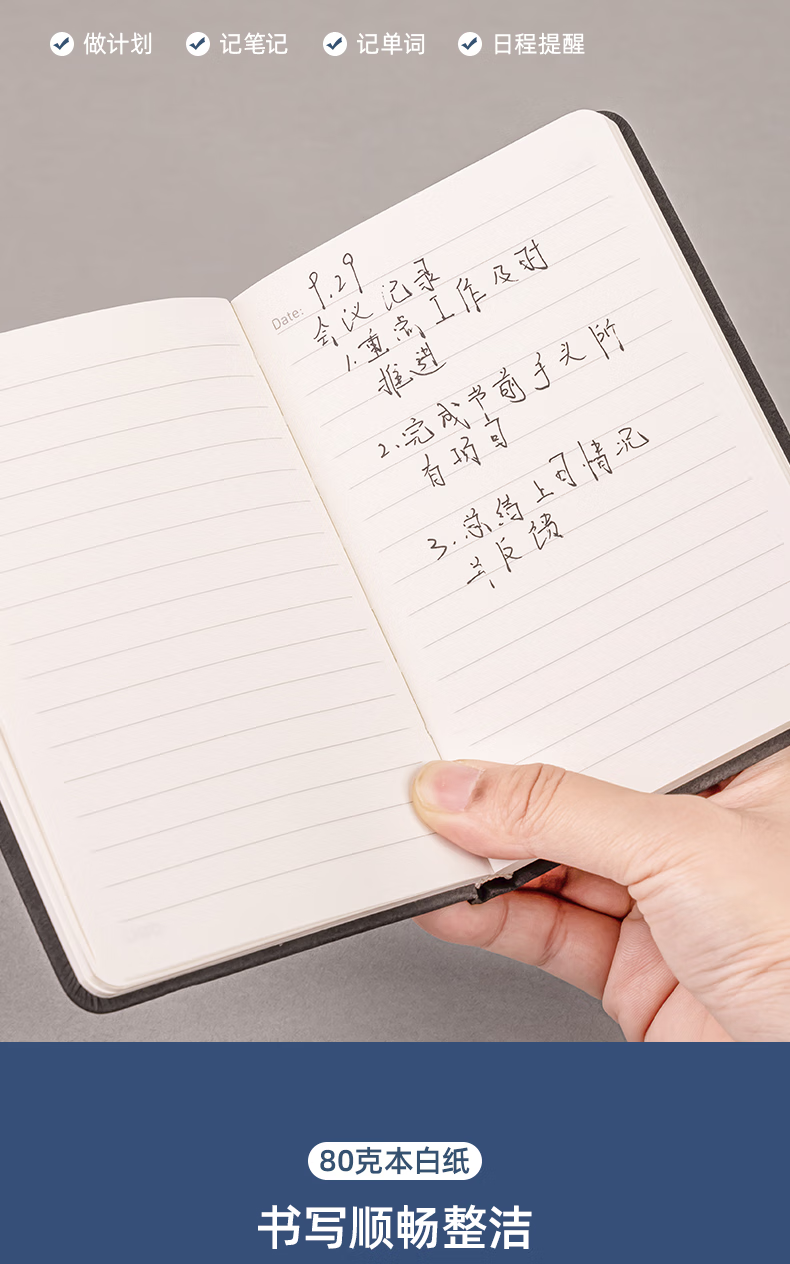 做计划 记笔记 记单词 日程提醒
Date: 9.29
会议记录
1.重点工作及时
推进
2.完成节前手头所
有项目
3.总结上月情况
并反馈
80克本白纸
书写顺畅整洁